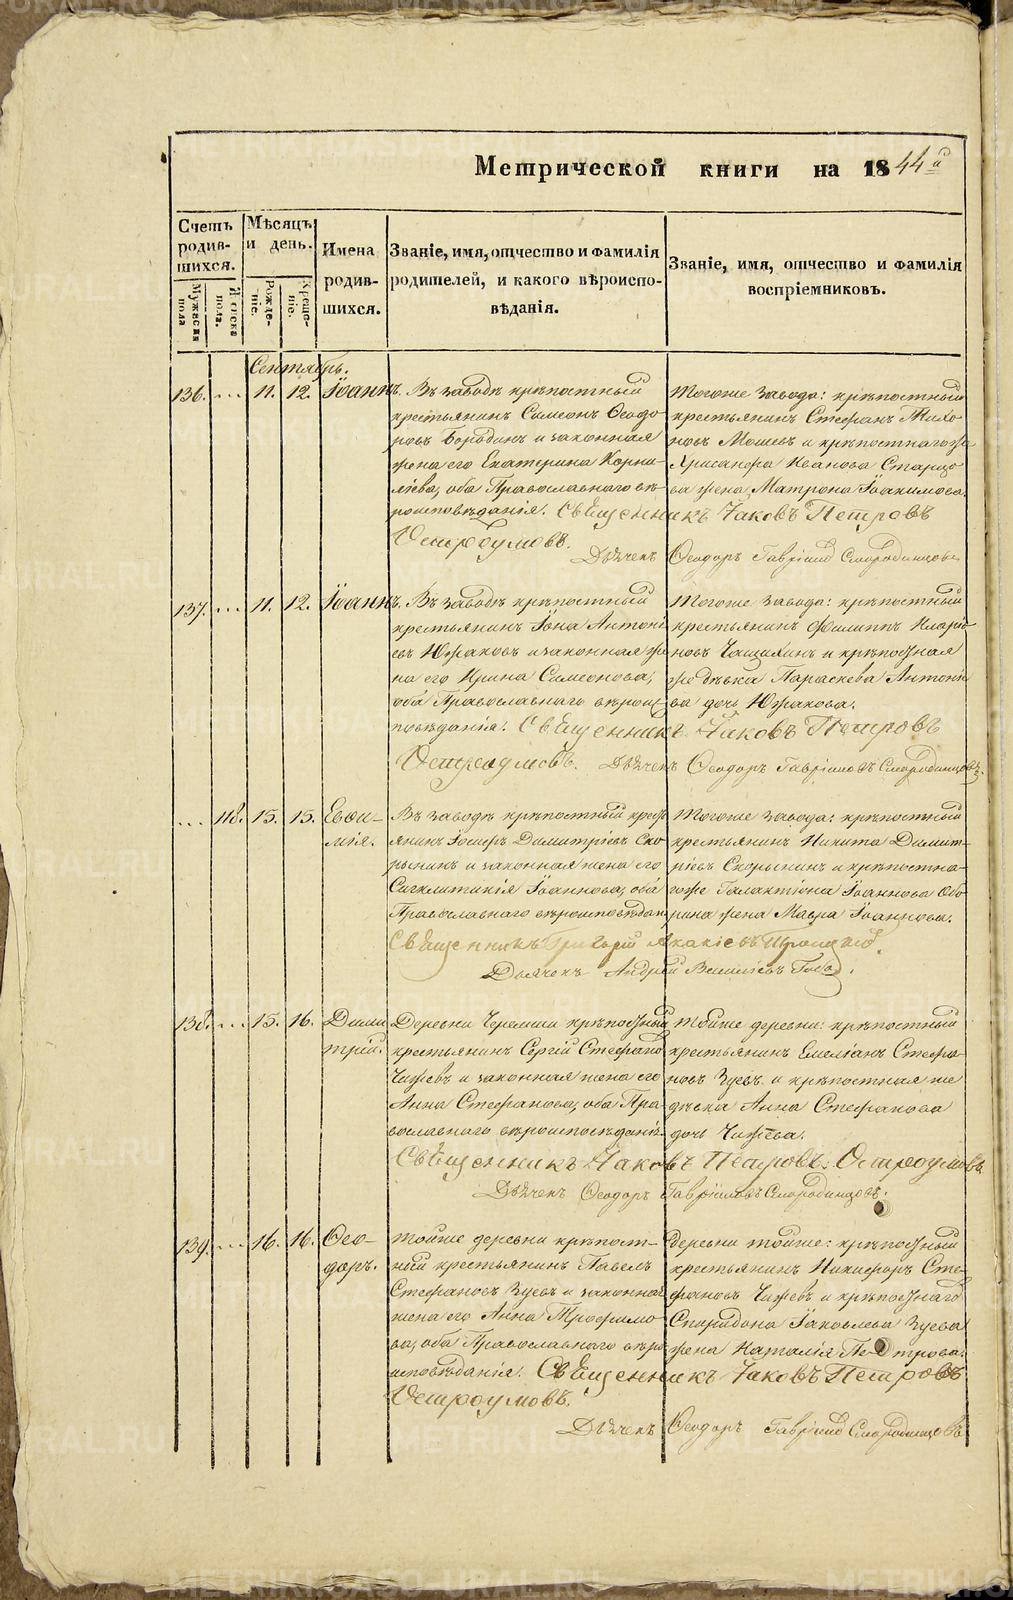 Метрической книги на 1844й
Счетъ родив-шихся.
Мужеска пола
Женска пола.
Мѣсяцъ и день.
Рожде-ніе.
Креще-ніе.
Имена родив-шихся.
Званіе, имя, отчество и фамилія родителей, и какого вѣроиспо-вѣданія.
Званіе, имя, отчество и фамилія воспріемниковъ.
Сентябрь.
136. ... 11. 12. Іоаннъ.
Въ заводѣ крѣпостный
крестьянинъ Симеонъ Ѳеодо-
ровъ Бородинъ и законная
жена его Екатерина Корни-
ліева, оба Православнаго вѣ-
роисповѣданія. Священникъ Іаковъ Петровъ
Остроумовъ.
Тогоже завода: крѣпостный
крестьянинъ Стефанъ
новъ и крѣпостнагоже
Хрисанфа Иванова Старцо-
ва жена Матрона Іоакимова.
Дьячекъ Ѳеодоръ Гавріиловъ Смородинцовъ
137. ... 11. 12. Іоаннъ.
Въ заводѣ крѣпостный
крестьянинъ Іона Антоні-
евъ Южаковъ и законная же-
на его Ирина Симеонова,
оба Православнаго вѣроис-
повѣданія. Священникъ Іаковъ Петровъ
Остроумовъ. Дьячекъ Ѳеодоръ Гавріиловъ Смородинцовъ.
Тогоже завода: крѣпостный
крестьянинъ Филиппъ Иларіо-
новъ и крѣпостная
же дѣвка Параскева Антоніе-
ва дочь Южакова.
... 118. 15. 15. Евѳи-
мія.
Въ заводѣ крѣпостный крест-
янинъ Іосифъ Димитріевъ Ско-
рынинъ и законная жена его
Сигклитикія Іоаннова, оба
Православнаго вѣроисповѣдан.
Священникъ Григорій Акакіевъ
Дьячекъ Андрей Василіевъ
Тогоже завода: крѣпостный
крестьянинъ Никита Димит-
ріевъ Скорынинъ и крѣпостна-
гоже Галактіона Іоаннова Обо-
рина жена Мавра Іоаннова.
138. ... 15. 16. Дими-
трій.
Деревни Черемши крѣпостный
крестьянинъ Сергій Стефано
Чижевъ и законная жена его
Анна Стефанова, оба Пра-
вославнаго вѣроисповѣданія.
Священникъ Іаковъ Петровъ Остроумовъ
Дьячекъ Ѳеодоръ Гавріиловъ Смородинцовъ.
Тойже деревни: крѣпостный
крестьянинъ Емеліанъ Стефа-
новъ Зуевъ и крѣпостная же
дѣвка Анна Стефанова
дочь Чижева.
139. ... 16. 16. Ѳео-
доръ.
Тойже деревни крѣпост-
ный крестьянинъ Павелъ
Стефановъ Зуевъ и законная
жена его Анна Трофимо-
ва, оба Православнаго вѣро-
исповѣданія. Священникъ Іаковъ Петровъ
Остроумовъ.
Деревни тойже: крѣпостный
крестьянинъ Никифоръ Сте-
фановъ Чижевъ и крѣпостнаго
Спиридона Іаковлева Зуева
жена Наталія Петрова.
Дьячекъ Ѳеодоръ Гавріиловъ Смородинцовъ
METRIKI.GASO-URAL.RU